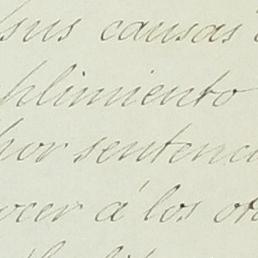 sus causas
plimiento
por sentenci
ocer á los ot